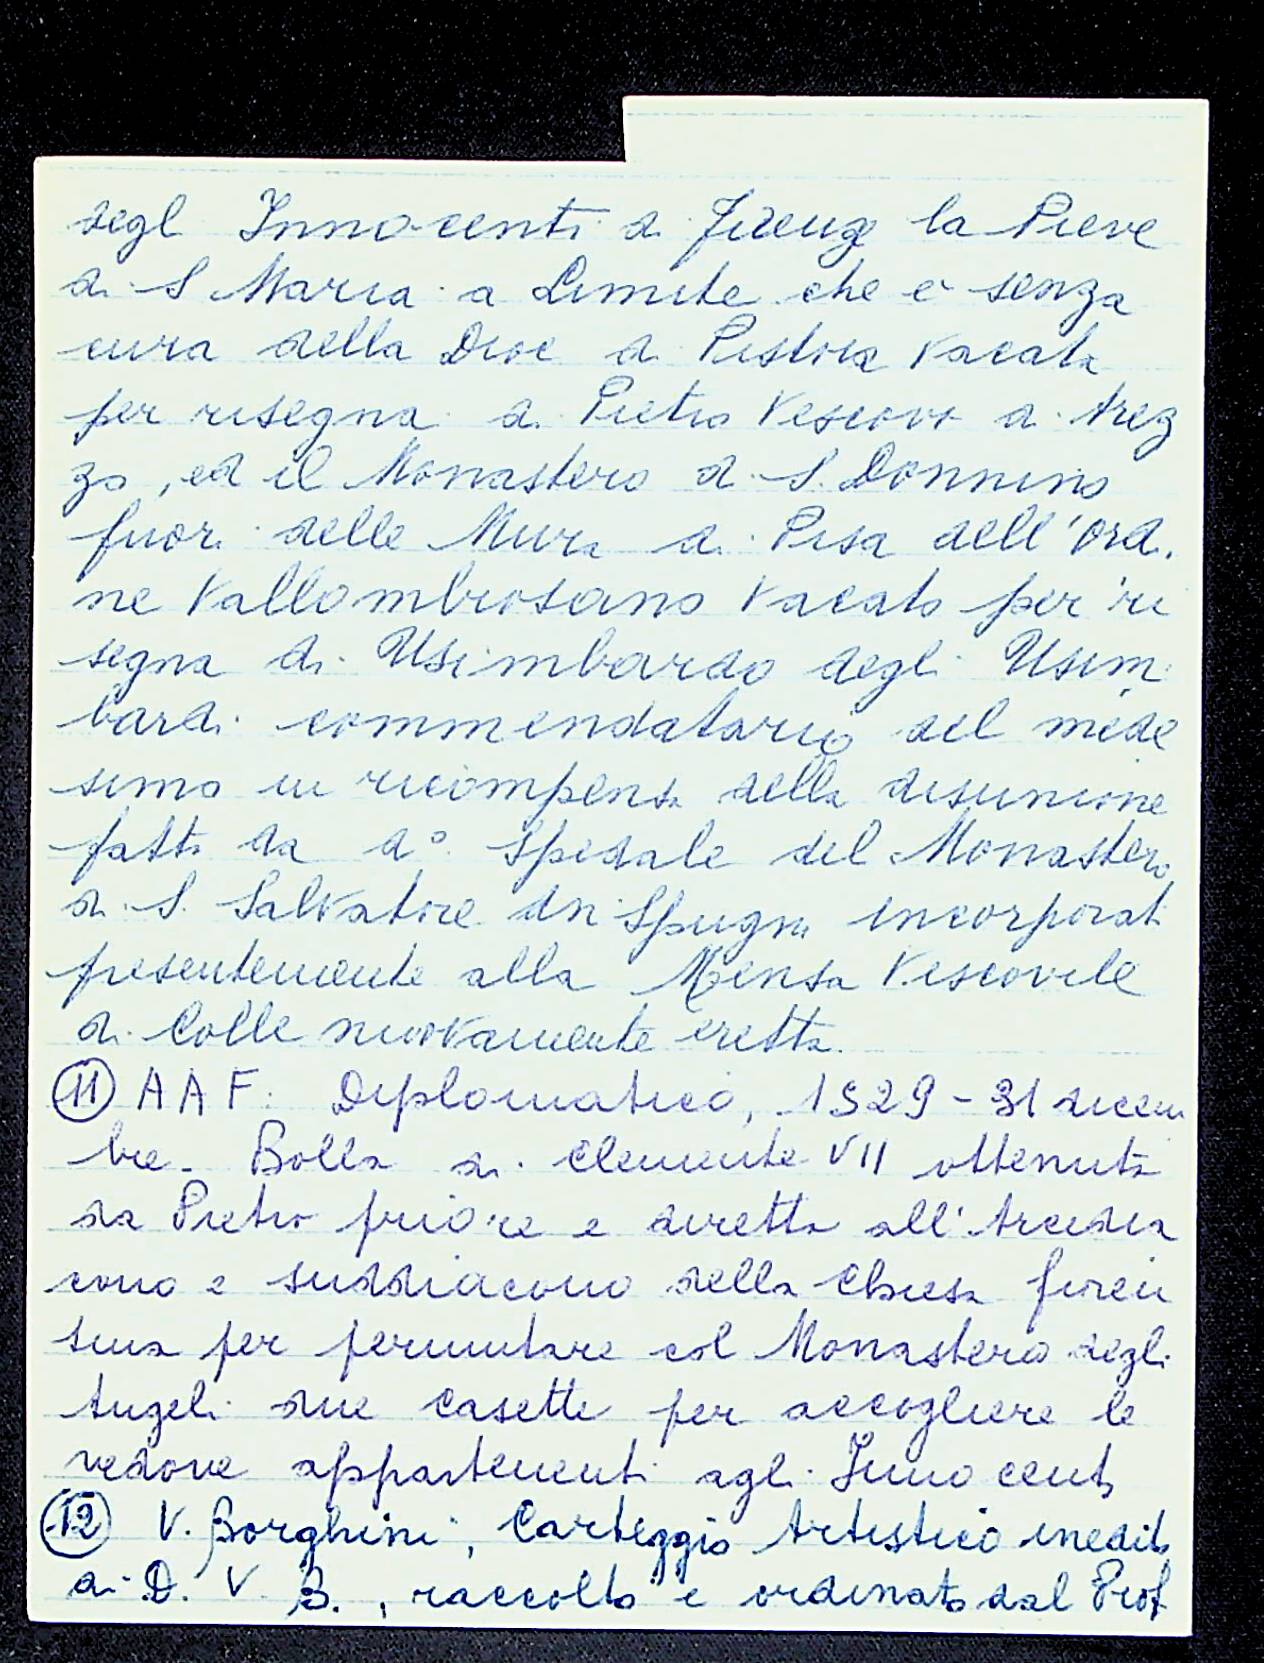 degl Innocenti di Firenze la Pieve
di S Maria a Limite che è senza
cura della Dioc di Pistoia vacata
per risegna di Pietro Vescovo di Arez
zo, ed il Monastero di S. Donnino
fuori delle Mura di Pisa dell'ordi
ne Vallombrosano vacato per ri
segna di Usimbardo degli Usim
bardi commendatario del mede
simo in ricompensa della disunione
fatta da do Spedale del Monastero
di S. Salvatore di Spugna incorporati
presentemente alla Mensa Vescovile
di Colle nuovamente eretta.
(11) A A F. Diplomatico, 1529 - 31 dicem
bre. Bolla di Clemente VII ottenuta
da Pietro priore e diretta all'Arcidia
cono e suddiacono della Chiesa fioren
tina per permutare col Monastero degli
Angeli due casette per accogliere le
vedove appartenenti agli Innocenti
(12) V. Borghini, Carteggio Artistico inedito
di D. V. B., raccolto e ordinato dal Prof